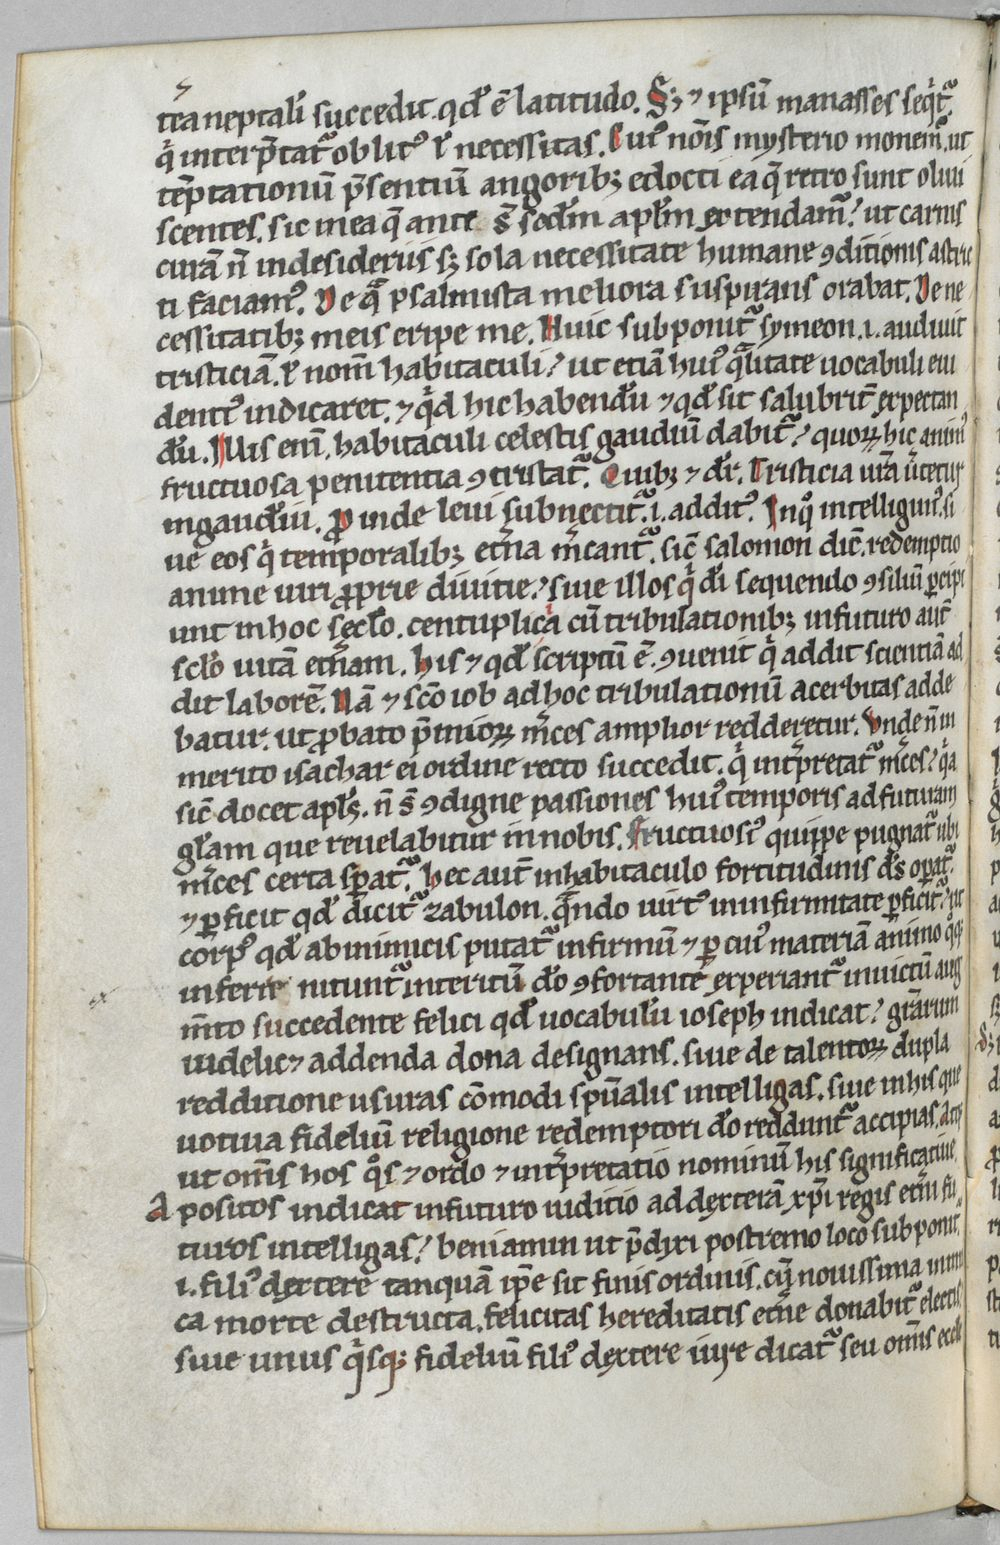 tea neptalī succedit. qđ ē latitudo. Sꝫ ⁊ ipsū manasses seqͥtᷓ.
qͥ interp̄tatᷓ oblitꝰ ł necessitas. Cuiꝰ nōis mysterio monemᷓ. ut
tēptationū p̄sentiū angoribꝫ edocti ea q̄ retro sunt oliui
scentes. sic in ea q̄ ante s̄ sođm apłm extendamᷓ. ut carnis
curā n̄ in desideriis sꝫ sola necessitate humane ꝯditionis astric
ti faciamꝰ. De qᷓ psalmista meliora suspirans orabat. De ne
cessitatibꝫ meis eripe me. Huic subponitᷓ symeon .i. audiuit
tristiciā. ł nom̄ habitaculi. ut etiā huiꝰ qᷓlitate uocabuli eui
dentᷓ indicaret. ⁊ qͥd hic habendū ⁊ qđ sit salubrit̄ expectan
dū. Illis enī. habitaculi celestis gaudiū dabitᷓ. quoꝝ hic animꝰ
fructuosa penitentia ꝯtristatᷓ. Quibꝫ ⁊ dr̄. Tristicia ur̄a ūtetur
in gaudiū. Proinde leui subnectitᷓ .i. additꝰ. In qͦ intelliguntᷓ. si
ue eos qͥ temporalibꝫ et̄na m̄cantᷓ. sic̄ salomon dic̄. redemptio
anime uiri ꝓprie diuitie. siue illos qͥ di sequendo ꝯsiliū ꝑcipi
unt in hoc secło. centuplicͣ cū tribulationibꝫ in futuro aut̄
scło uitā et̄nam. His ⁊ qđ scriptū ē. ꝯuenit qͥ addit scientiā ad
dit laborē. Nā ⁊ sc̄o iob ad hoc tribulationū acerbitas adde
batur. ut ꝓbato p̄mioꝝ m̄ces amplior redderetur. Unde n̄ in
merito isachar ei ordine recto succedit. qͥ int̄pretatᷓ m̄ces. qͥa
sic̄ docet apłs. n̄ s̄ ꝯdigne passiones huiꝰ temporis ad futuram
głam que reuelabitur in nobis. Fructuosiꝰ quippe pugnatᷓ ubi
m̄ces certa speratᷓ. Hec aut̄ in habitaculo fortitudinis ds̄ opatᷓ.
⁊ ꝑficit qđ dicitᷓ zabulon. qᷓndo uirtꝰ in infirmitate ꝑficitᷓ. ut
corpꝰ qđ ab inimicis putatᷓ infirmū ⁊ ꝑ cuiꝰ materiā animo qͦqꝫ
inferre nituntᷓ interitū đo ꝯfortante experiantᷓ inuictū aug
m̄to succedente felici qđ uocabulū ioseph indicat. gr̄arum
uidelic⁊ addenda dona designans. siue de talentoꝝ dupla
redditione usuras cōmodi spūalis intelligas. siue in his que
uotiua fideliū religione redemptori đo redduntᷓ accipias.
ut om̄s hos qͦs ⁊ ordo ⁊ int̄pretatio nominū his significatiue
Apositos indicat in futuro iuditio ad dexterā xp̄i regis et̄ni fu
turos intelligas. beniamin ut p̄dixi postremo loco subponitᷓ.
.i. filiꝰ dextere tanquā ip̄e sit finis ordinis. cū nouissima inimi
ca morte destructa. felicitas hereditatis et̄ne donabitᷓ electis
siue unus qͥsqꝫ fideliū filiꝰ dextere iure dicatᷓ seu om̄is eccłe